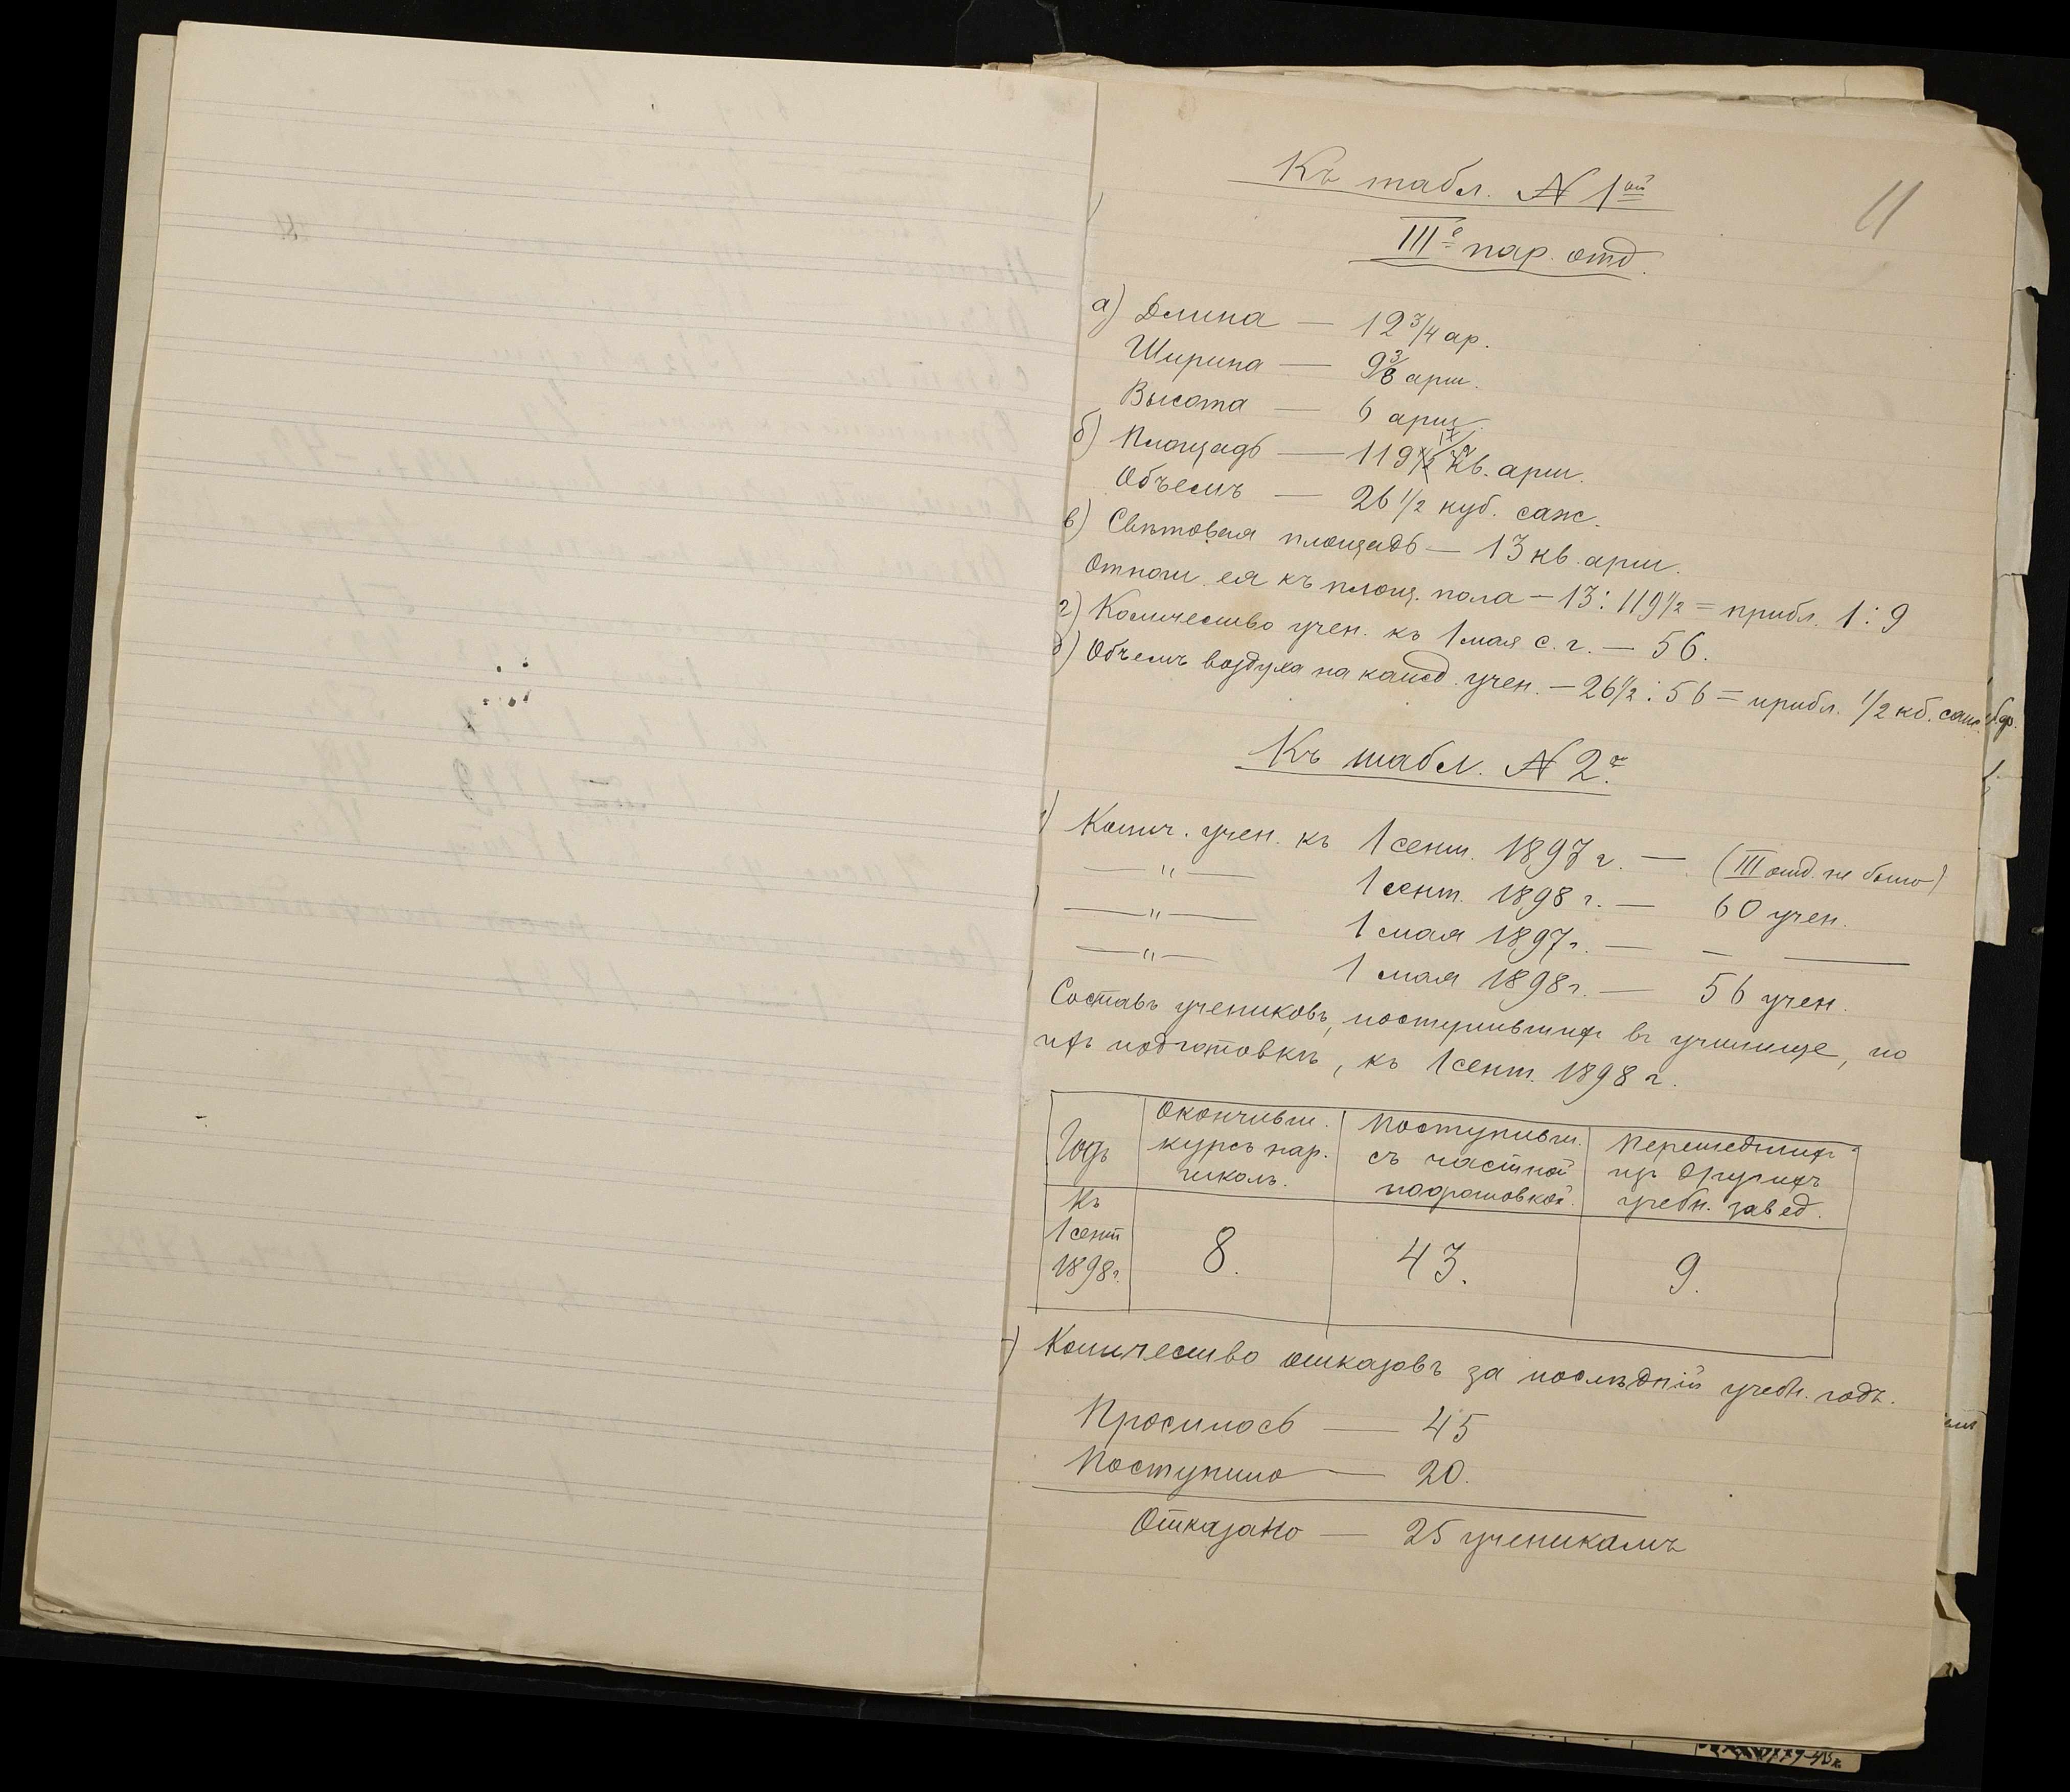 11
Къ табл. N 1ой
III-е пар. отд.
а) Длина — 12 3/4 ар.
Ширина — 9 3/8 арш.
Высота — 6 арш.
б) Площадь — 119 кв. арш.
Объемъ — 26 1/2 куб. саж.
в) Свѣтовая площадь — 13 кв. арш.
Отнош. ея къ площ. пола — 13 : 119 1/2 = прибл. 1 : 9
г) Количество учен. къ 1 мая с. г. — 56.
д) Объемъ воздуха на кажд. учен. — 26 1/2 : 56 = прибл. 1/2 кб. саж.
Къ табл. N 2й
Колич. учен. къ 1 сент. 1897 г. — (III отд. не было)
— " — 1 сент. 1898 г. — 60 учен.
— " — 1 мая 1897 г. — — —
— " — 1 мая 1898 г. — 56 учен.
Составъ учениковъ, поступившихъ въ училище, по
ихъ подготовкѣ, къ 1 сент. 1898 г.
Годъ
Окончивш.
курсъ нар.
школъ.
Поступивш.
съ частной
подготовкой.
Перешедшихъ
изъ другихъ
учебн. завед.
Къ
1 сент
1898 г.
8.
43.
9.
Количество отказовъ за послѣдній учебн. годъ.
Просилось — 45
Поступило — 20.
Отказано — 25 ученикамъ